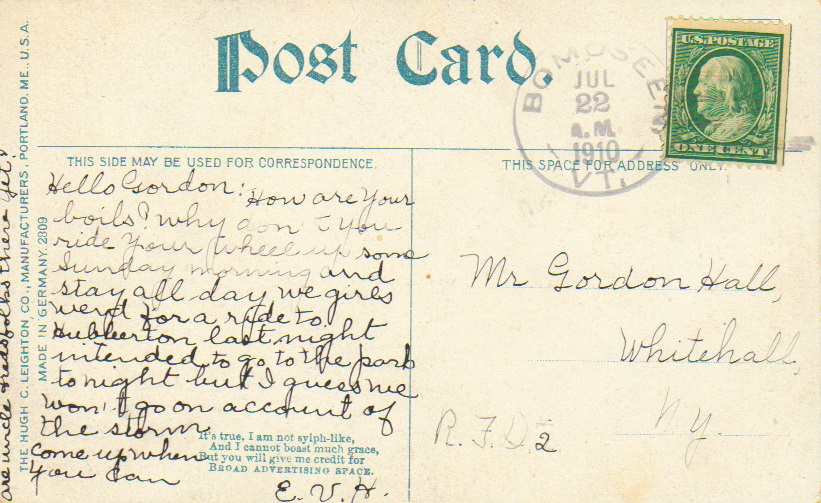 Post Card.
BOMOSEEN
JUL
22
A.M.
1910
VT.
U.S. POSTAGE
ONE CENT
THIS SIDE MAY BE USED FOR CORRESPONDENCE.
THIS SPACE FOR ADDRESS ONLY.
Hello Gordon: How are your
boils? why don't you
ride your wheel up some
Sunday morning and
stay all day we girls
went for a ride to
Hubberton last night
intended to go to the park
tonight but I guess we
won't go on account of
the storm
come up when
you can
E. V. H.
are uncle Neds folks there yet?
It's true, I am not sylph-like,
And I cannot boast much grace,
But you will give me credit for
BROAD ADVERTISING SPACE.
Mr Gordon Hall,
Whitehall,
Ny.
R.F.D. 2
THE HUGH C. LEIGHTON CO., MANUFACTURERS, PORTLAND, ME., U.S.A.
MADE IN GERMANY. 2809